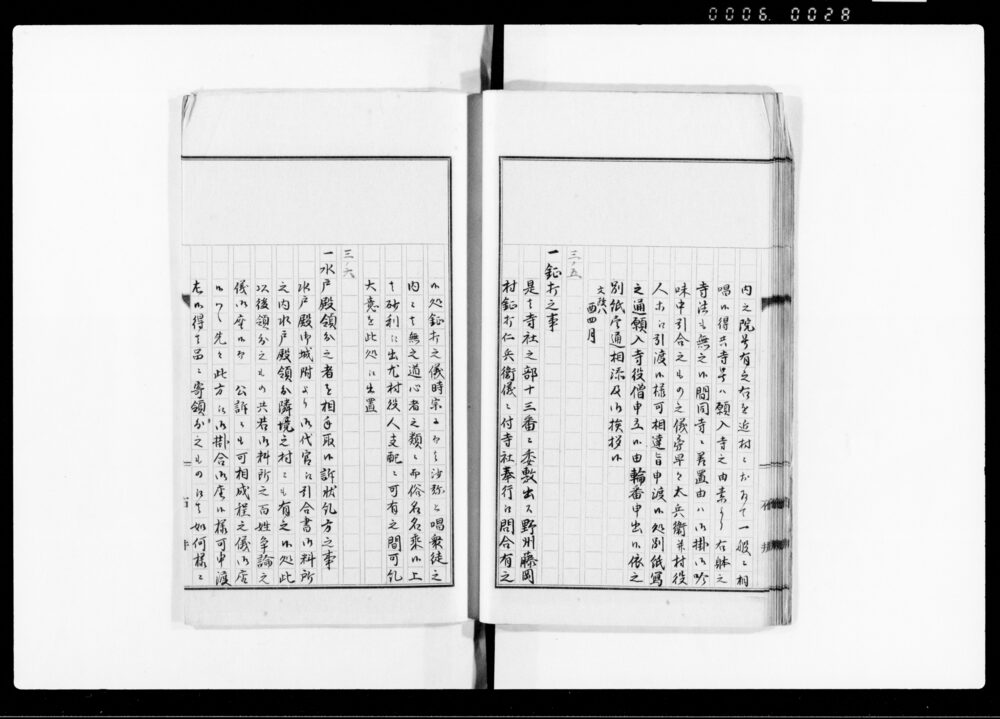 0006. 0028
内之院号有之右を近村ニおゐて一般ニ相
唱候得共寺号ハ願入寺之由素より右躰之
寺法も無之候間同寺ニ差置由ハ御掛御吟
味中引合之もの之儀旁早々太兵衛并村役
人共江引渡候様可相達旨申渡候処別紙写
之通願入寺役僧申立候由輪番申出候依之
別紙壱通相添及御挨拶候
文政八 酉四月
三ノ五
一鉦打之事
是者寺社之部十三番ニ委敷出ス野州藤岡
村鉦打仁兵衛儀ニ付寺社奉行江問合有之
候処鉦打之儀時宗ニ而者沙弥と唱衆徒之
内ニ者無之道心者之類ニ而俗名名乗候上
者砂利江出尤村役人支配ニ可有之間可凡
大意を此処江出置
三ノ六
一水戸殿領分之者を相手取候訴状凡方之事
水戸殿御城附より御代官江引合書御料所
之内水戸殿領分隣境之村々も有之候処此
以後領分之もの共若御料所之百姓争論之
儀御座候而 公訴ニも可相成程之儀御座
候ハヽ先々此方江御掛合御座候様可申渡
右候得者品ニ寄領分之もの江者如何様ニ